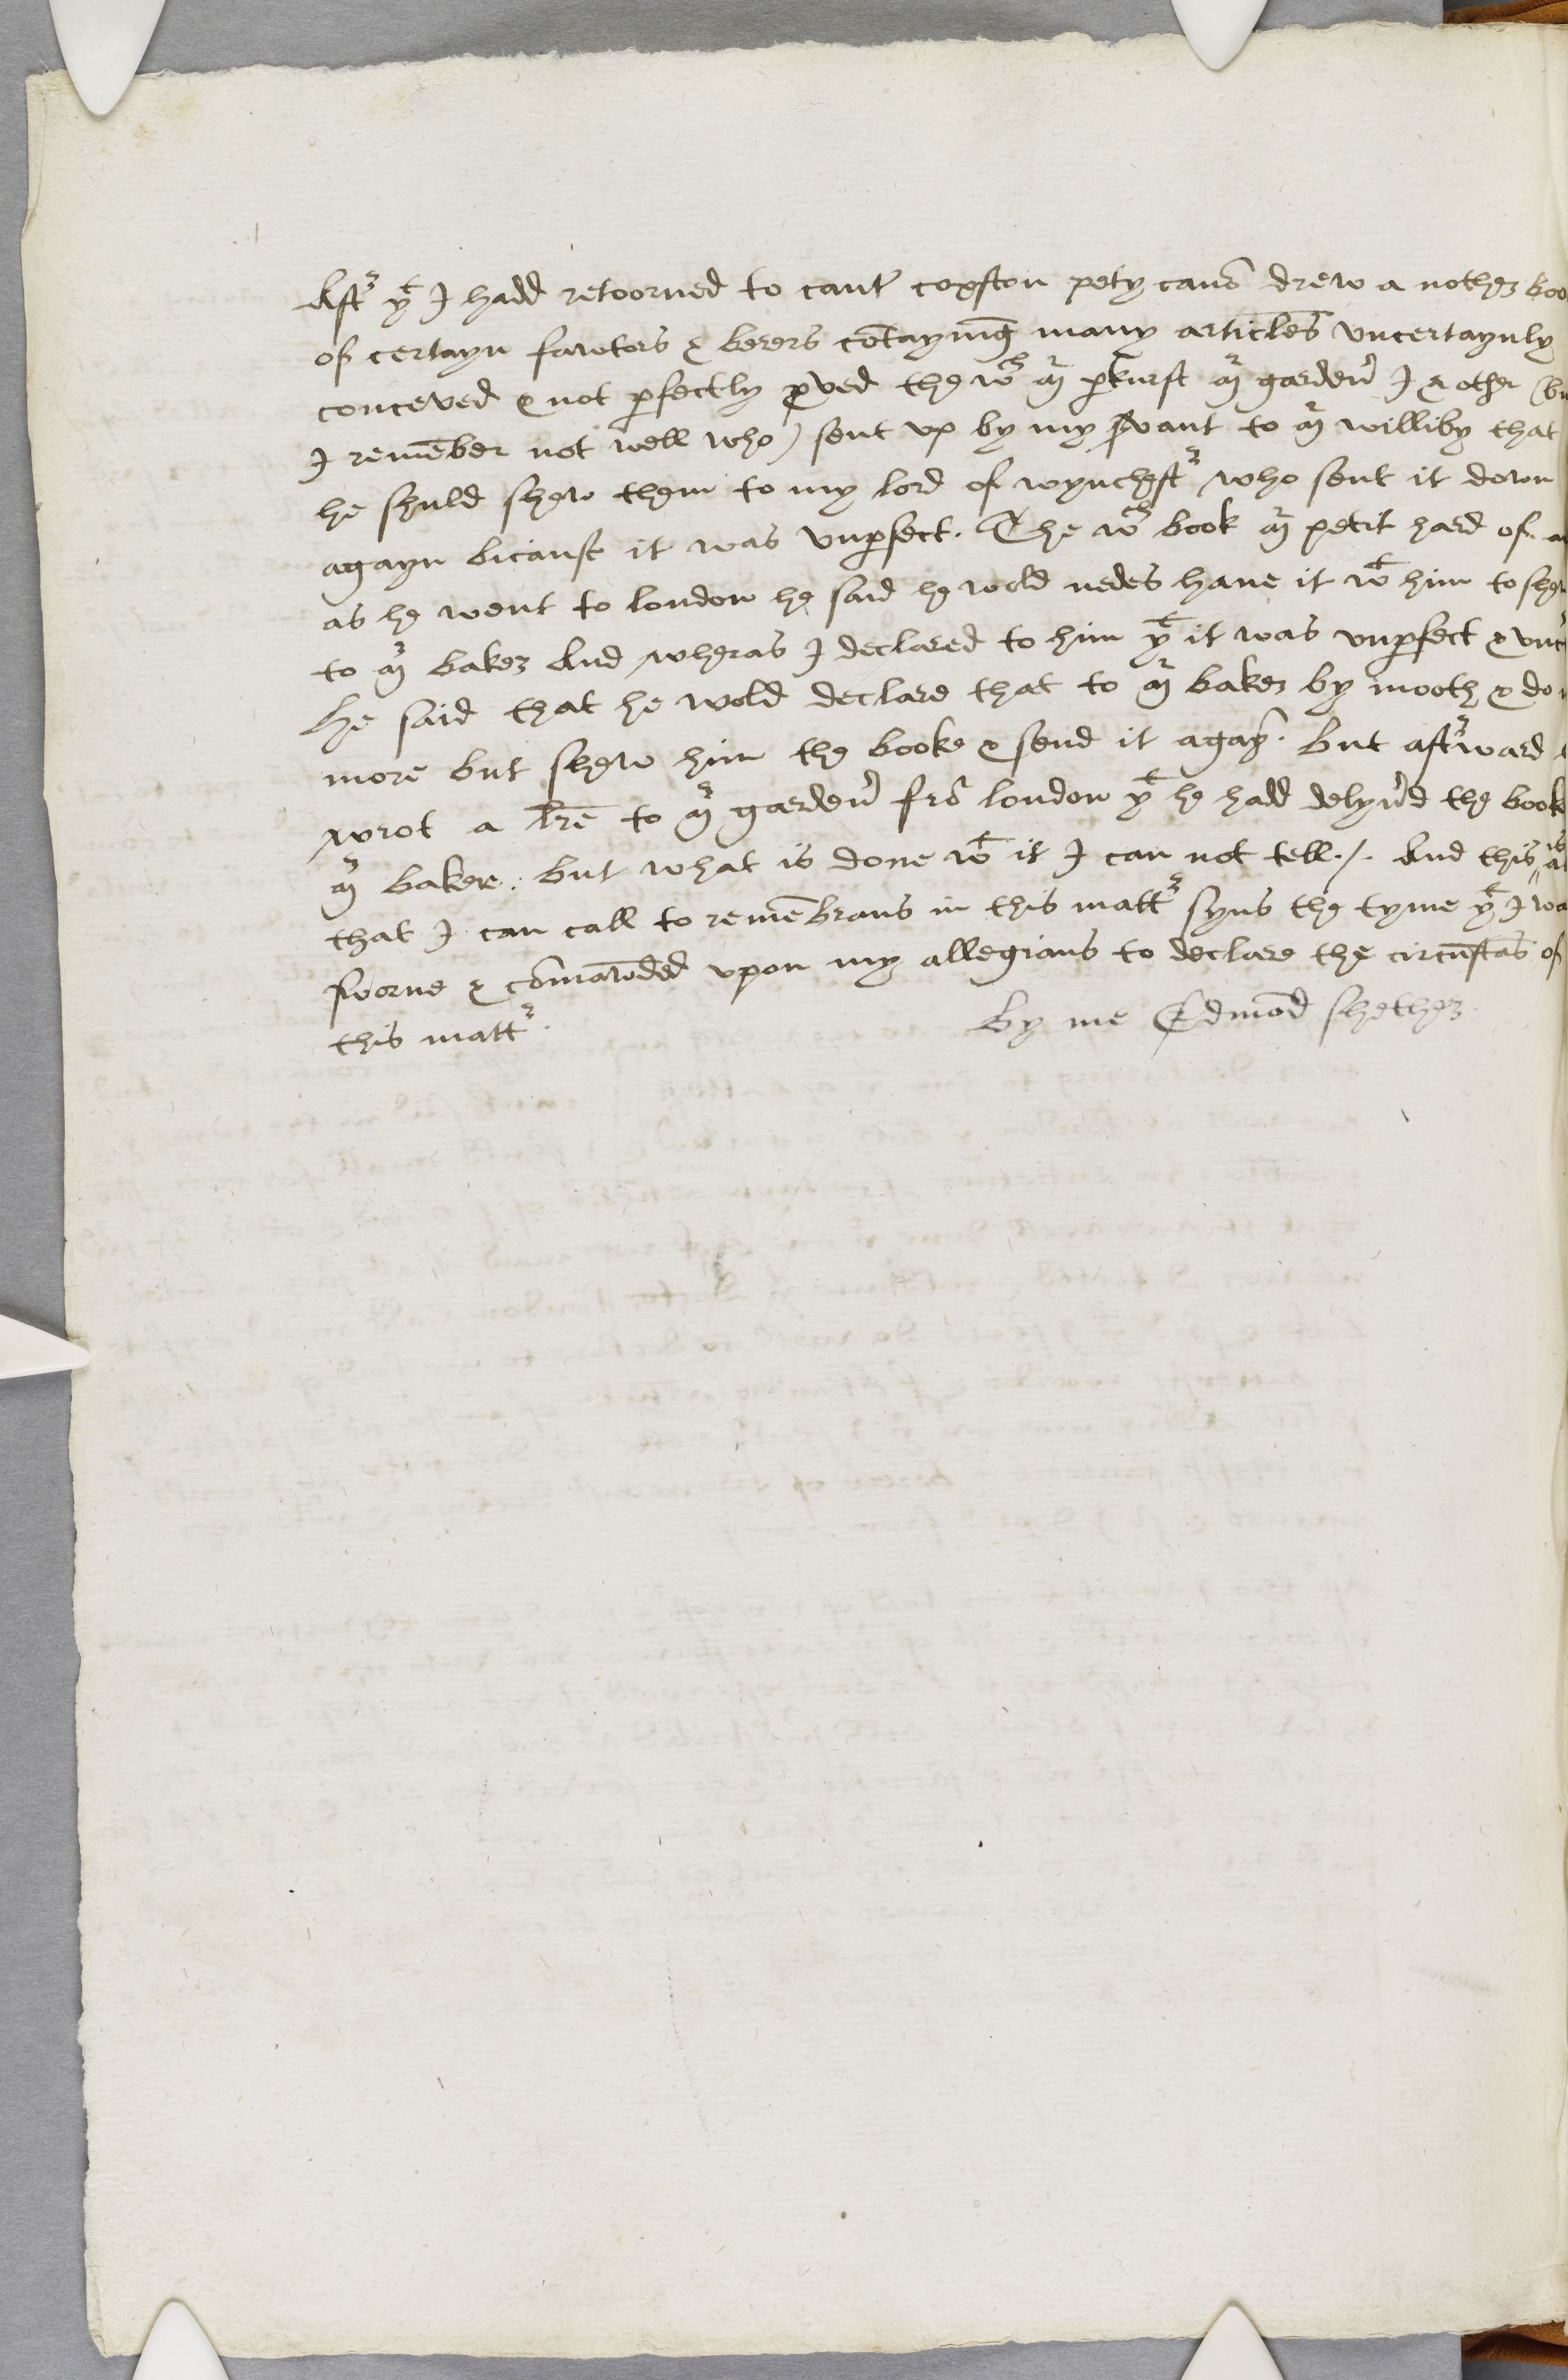 Aftr yt I hadd retoorned to cantr coxston pety canõ drew a nother boo
of certayn fawtors & berers cõtayning many articles uncertaynly
conceved & not pfectly pved the wch mr pkurst mr gardenr I & other (bu
I remẽber not well who) sent up by my svant to mr williby that
he shuld shew them to my lord of wynchestr who sent it down
agayn bicause it was unpfect. The wch book mr petit hard of
as he went to london he said he wold nedes have it wt him to shew
to mr baker And wheras I declared to him yt it was unpfect &
he said that he wold declare that to mr baker by mooth & do
more but shew him the booke & send it agayn. But aftrward
wrot a lrẽ to mr gardenr frõ london yt he hadd delyvrd the book
mr baker. But what is done wt it I can not tell./. And this is
that I can call to remẽbrans in this mattr syns the tyme yt I wa
sworne & cõmawnded upon my allegians to declare the circũstãs of
this mattr.
By me Edmõd shether